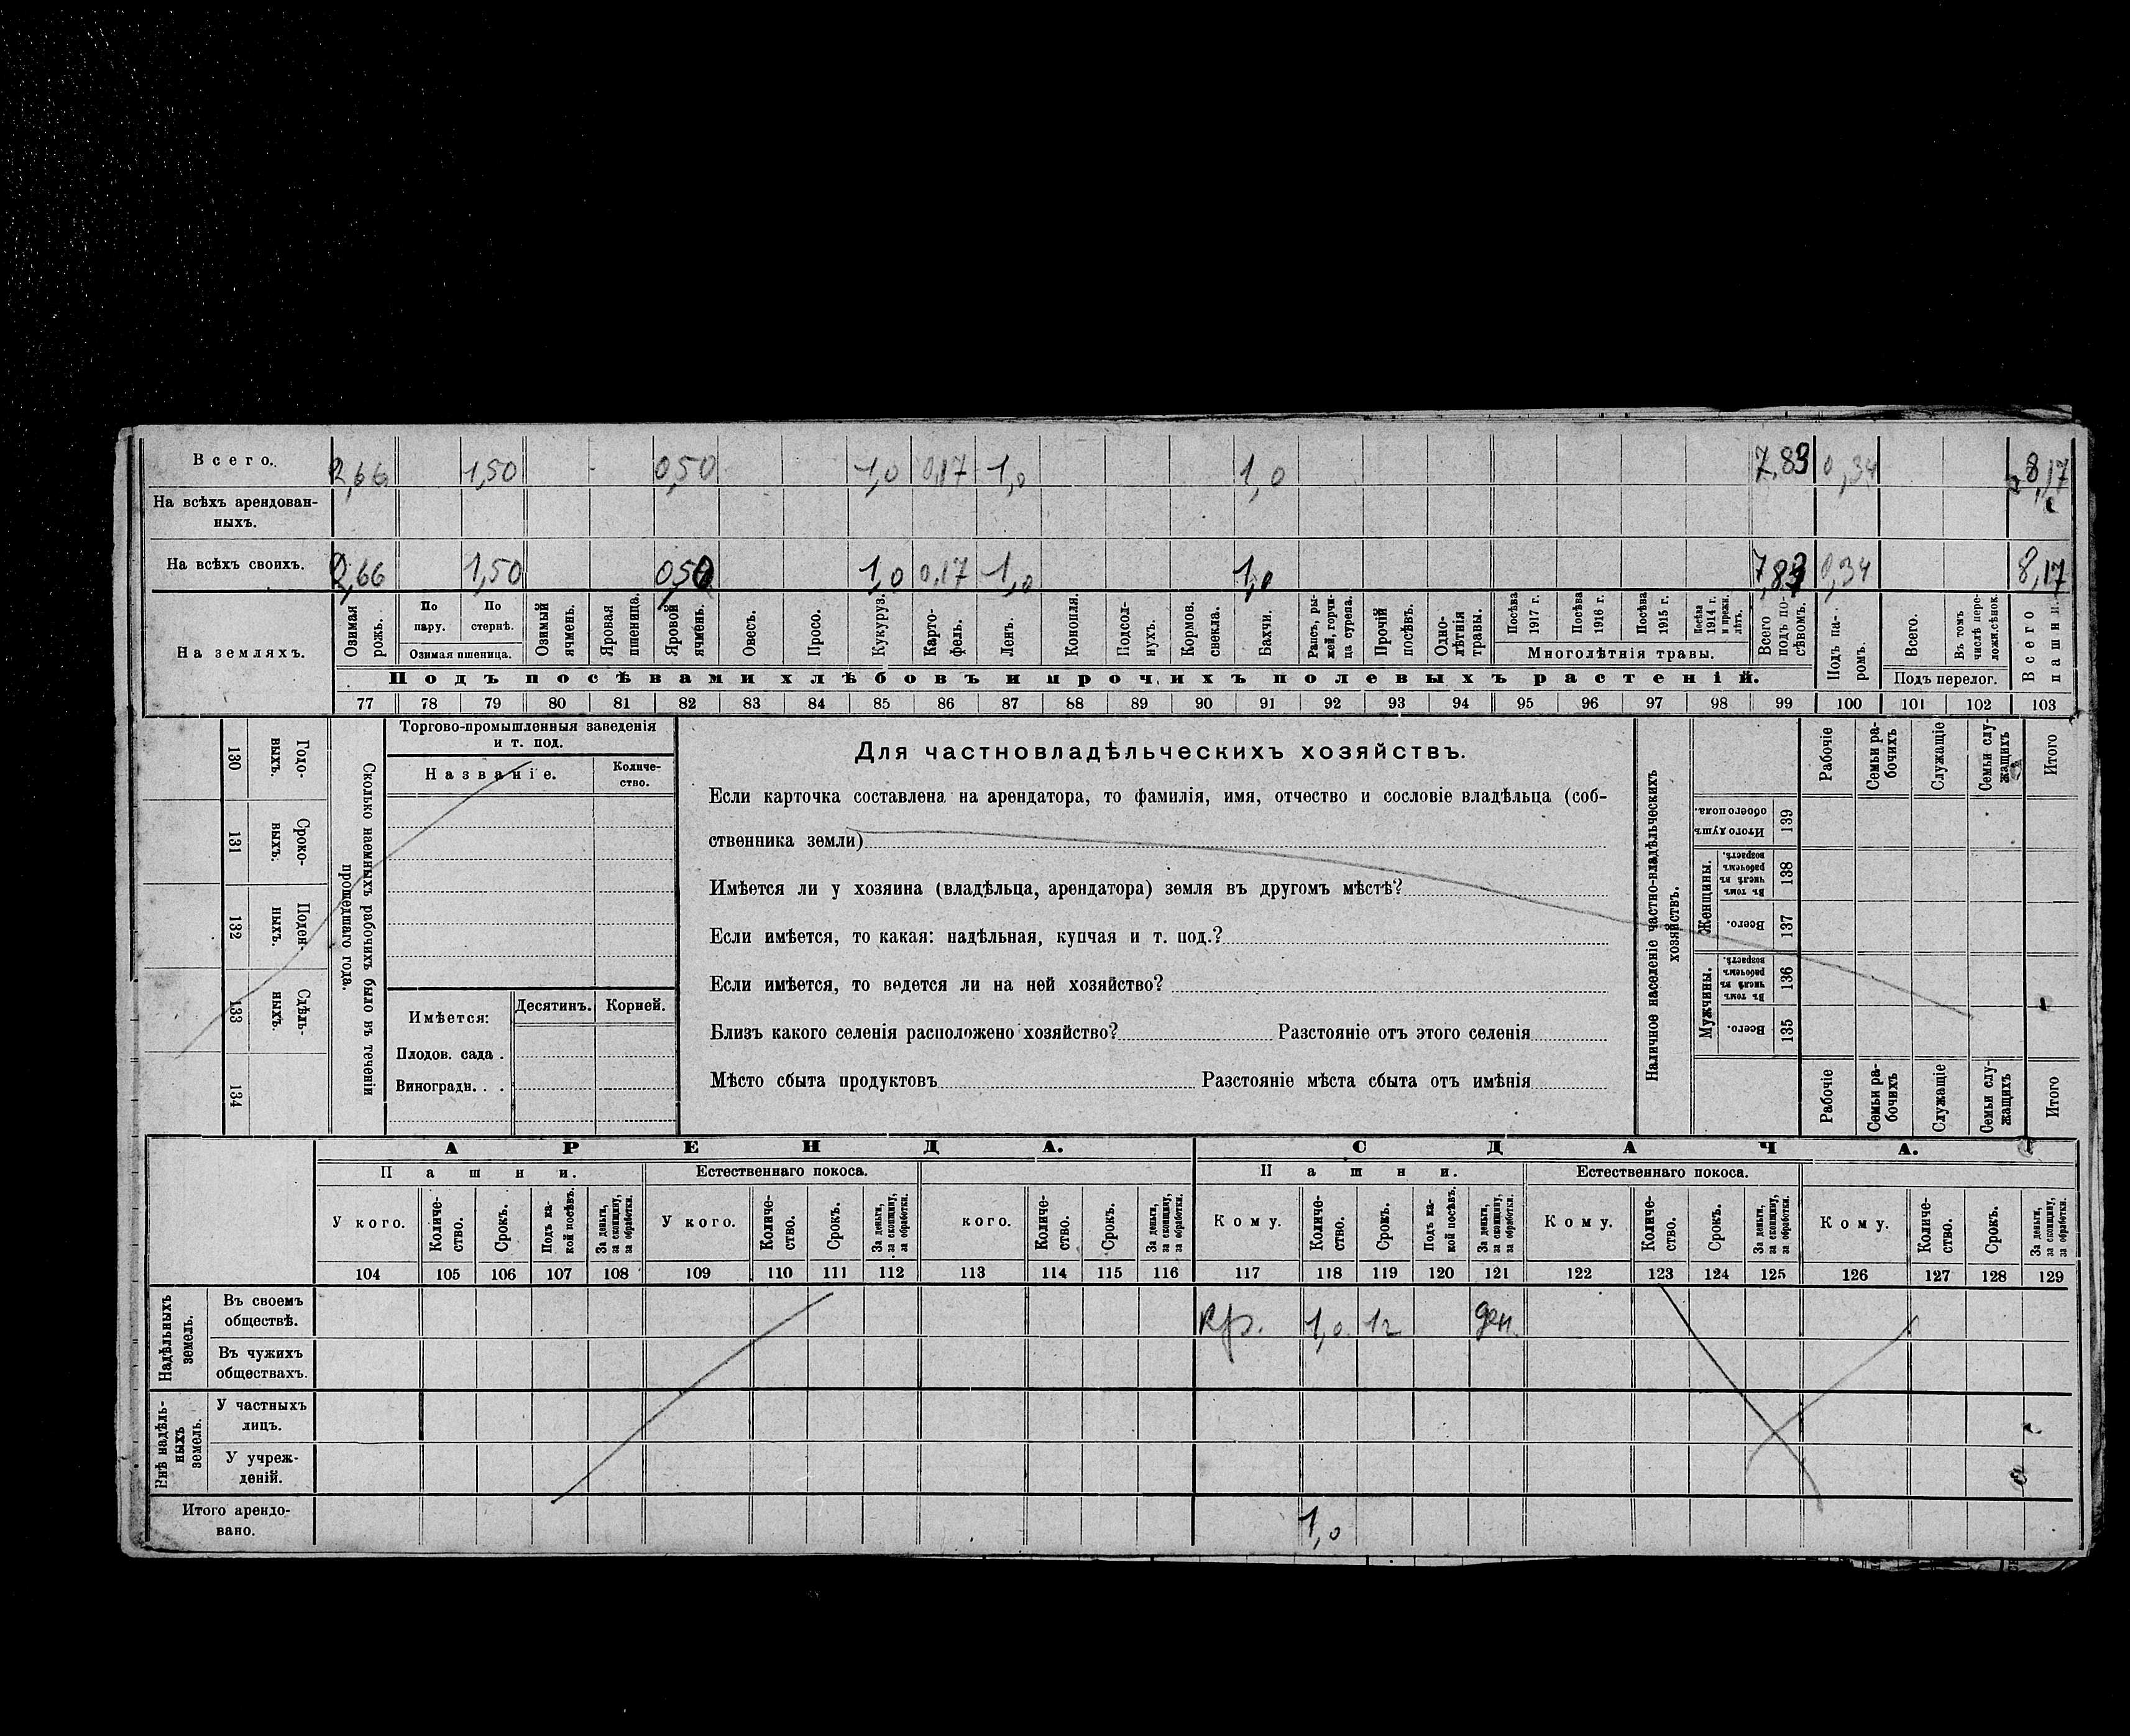 Всего. 2,66 1,50 0,50 1,0 0,17 1,0 1,0 7,83 0,34 8,17
На всѣхъ арендован-
ныхъ.
На всѣхъ своихъ. 2,66 1,50 0,50 1,0 0,17 1,0 1,0 7,83 0,34 8,17
На земляхъ.
Озимая рожь.
По пару.
По стернѣ.
Озимая пшеница.
Озимый ячмень.
Яровая пшеница.
Яровой ячмень.
Овесъ.
Просо.
Кукуруз.
Карто-
фель.
Ленъ.
Конопля.
Подсол-
нухъ.
Кормов. свекла.
Бахчи.
Рапсъ, ры-
жей, горчи-
ца сурепа.
Прочій посѣвъ.
Одно-
лѣтнія травы.
Посѣва 1917 г.
Посѣва 1916 г.
Посѣва 1915 г.
Посѣва 1914 г. и прежн. лѣтъ.
Многолѣтнія травы.
Всего подъ по-
сѣвомъ.
Подъ па-
ромъ.
Всего.
Въ томъ числѣ пере-
ложн.сѣнок.
Подъ перелог.
Всего пашни.
Подъ посѣвами хлѣбовъ и прочихъ полевыхъ растеній.
77 78 79 80 81 82 83 84 85 86 87 88 89 90 91 92 93 94 95 96 97 98 99 100 101 102 103
130 Годо-
выхъ.
131 Сроко-
выхъ.
132 Поден-
ныхъ.
133 Сдѣль-
ныхъ.
134
Сколько наемныхъ рабочихъ было въ теченіи
прошедшаго года.
Торгово-промышленныя заведенія
и т. под.
Названіе.
Количе-
ство.
Имѣется: Десятинъ. Корней.
Плодов. сада .
Виноградн. . .
Для частновладѣльческихъ хозяйствъ.
Если карточка составлена на арендатора, то фамилія, имя, отчество и сословіе владѣльца (соб-
ственника земли)
Имѣется ли у хозяина (владѣльца, арендатора) земля въ другомъ мѣстѣ?
Если имѣется, то какая: надѣльная, купчая и т. под.?
Если имѣется, то ведется ли на ней хозяйство?
Близъ какого селенія расположено хозяйство? Разстояніе отъ этого селенія
Мѣсто сбыта продуктовъ Разстояніе мѣста сбыта отъ имѣнія
Наличное населеніе частно-владѣльческихъ
хозяйствъ.
Рабочіе
Семьи ра-
бочихъ
Служащіе
Семьи слу-
жащихъ
Итого
Итого душъ обоего пола. 139
Женщины.
Въ томъ числѣ въ рабочемъ возрастѣ. 138
Всего. 137
Мужчины.
Въ томъ числѣ въ рабочемъ возрастѣ. 136
Всего. 135
Рабочіе
Семьи ра-
бочихъ
Служащіе
Семьи слу-
жащихъ
Итого
АРЕНДА. СДАЧА.
Пашни. Естественнаго покоса. Пашни. Естественнаго покоса.
У кого.
Количе-
ство.
Срокъ.
Подъ ка-
кой посѣвъ.
За деньги,
за скопщину,
за обработки.
У кого.
Количе-
ство.
Срокъ.
За деньги,
за скопщину,
за обработки.
кого.
Количе-
ство.
Срокъ.
За деньги,
за скопщину,
за обработки.
Кому.
Количе-
ство.
Срокъ.
Подъ ка-
кой посѣвъ.
За деньги,
за скопщину,
за обработки.
Кому.
Количе-
ство.
Срокъ.
За деньги,
за скопщину,
за обработки.
Кому.
Количе-
ство.
Срокъ.
За деньги,
за скопщину,
за обработки.
104 105 106 107 108 109 110 111 112 113 114 115 116 117 118 119 120 121 122 123 124 125 126 127 128 129
Надѣльныхъ
земель.
Въ своемъ
обществѣ. Кр. 1,0 1г. ден.
Въ чужихъ
обществахъ.
Внѣ надѣль-
ныхъ
земель.
У частныхъ
лицъ.
У учреж-
деній.
Итого арендо-
вано. 1,0